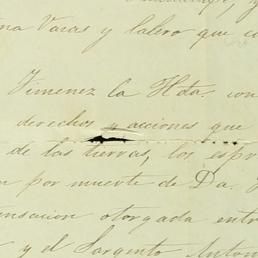 na Vacas y Calero que co
Jimenez la Hda. con
derechos y acciones que
de las tierras, los espr
por muerte de Da.
ensacion otorgada entr
y el Sargento Anton